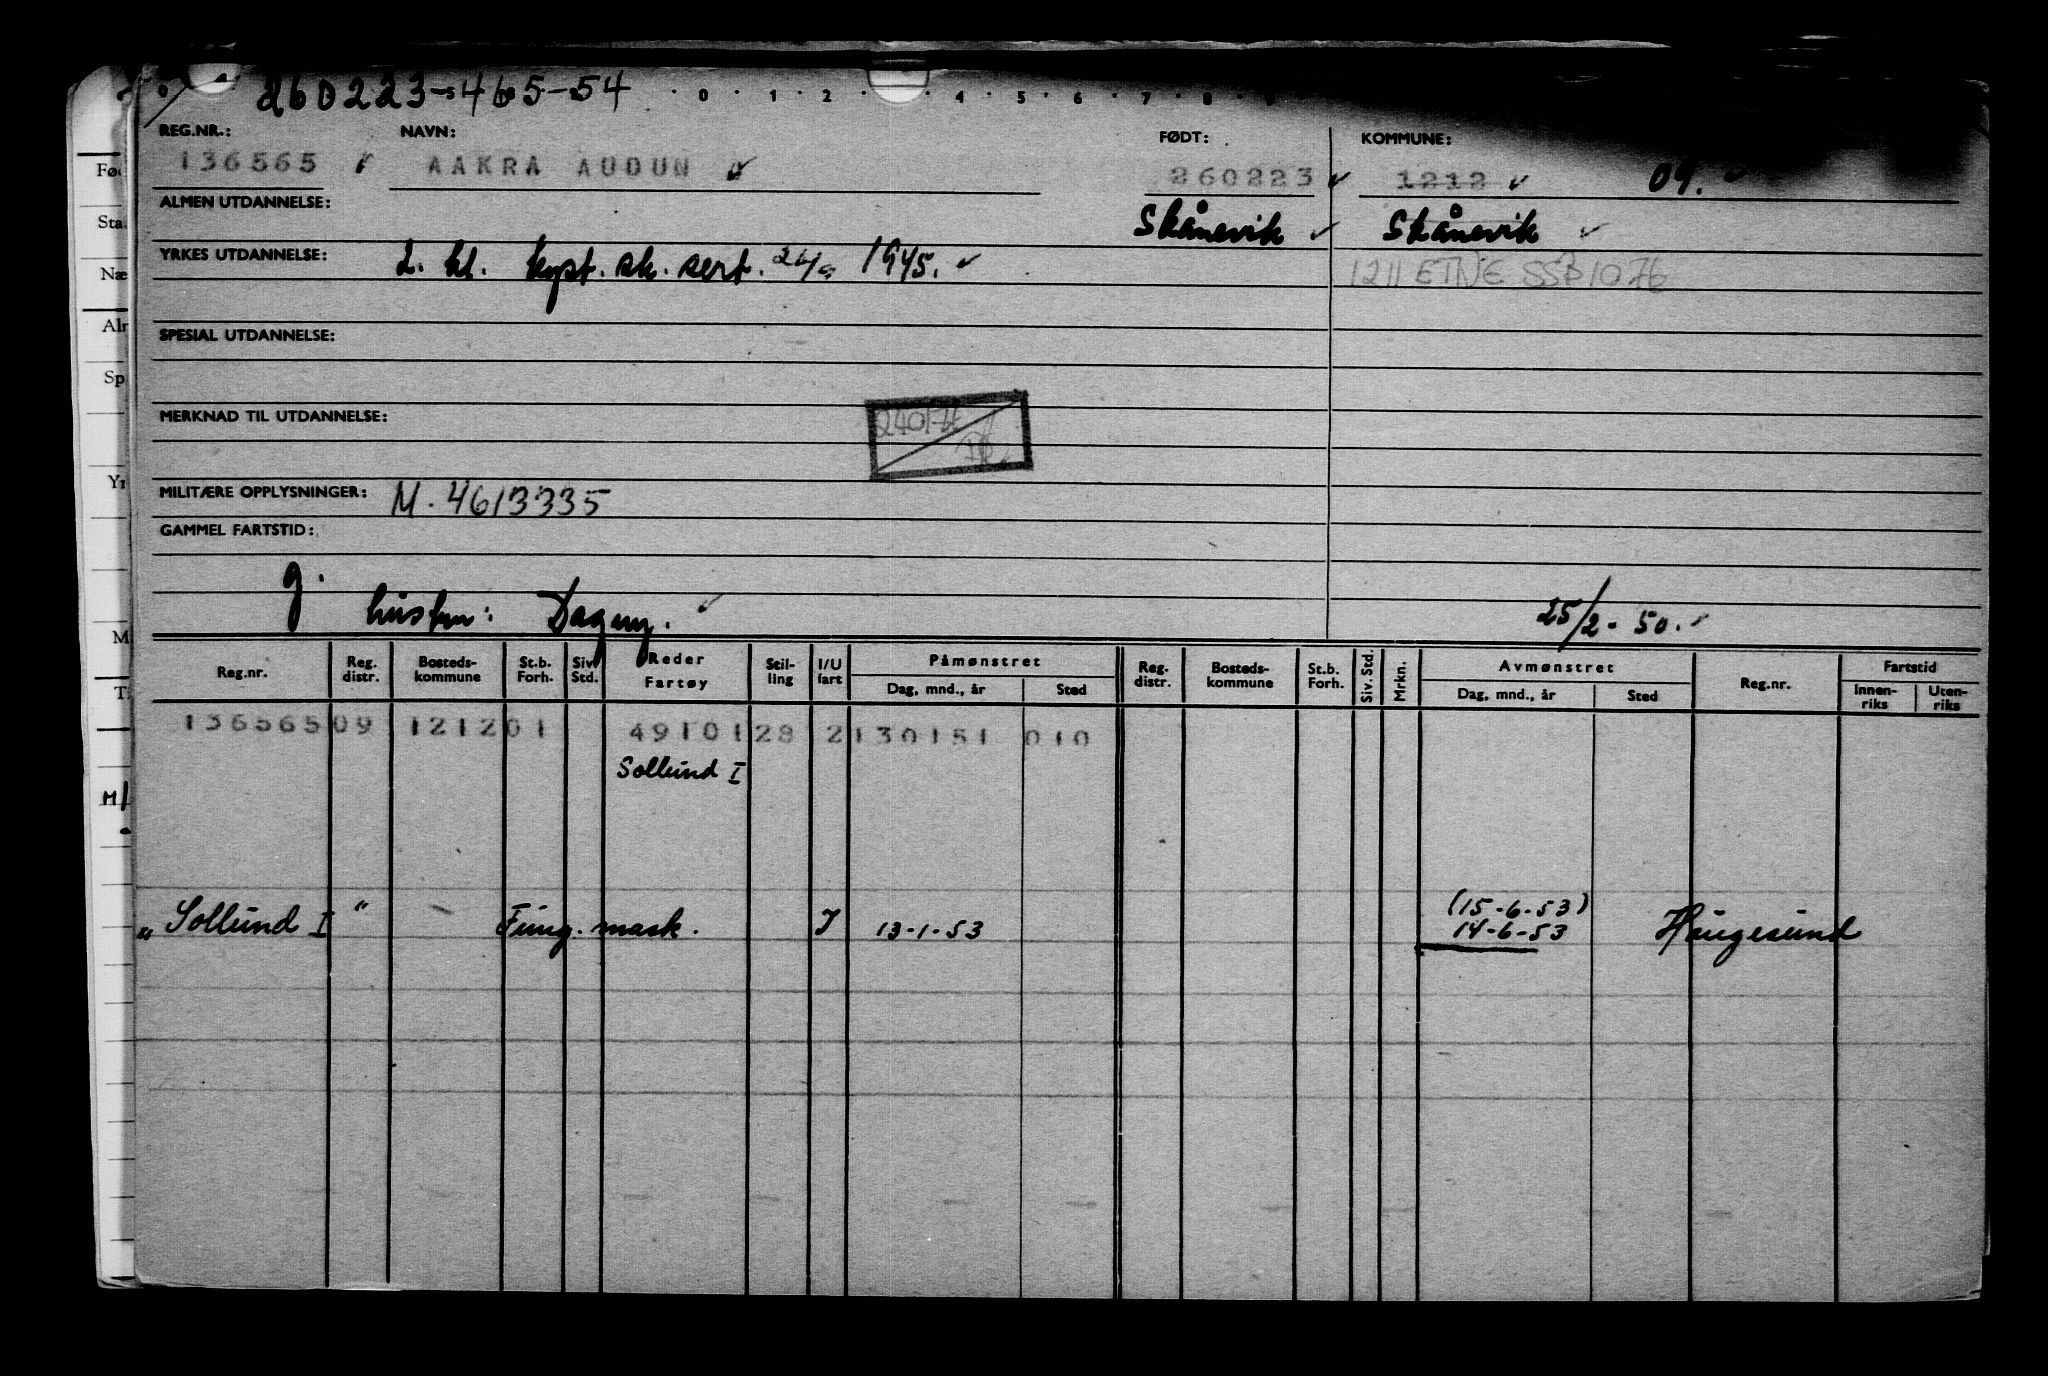 260223-465-54
0 1 2 4 5 6 7 8 9
REG.NR.: NAVN: FØDT: KOMMUNE:
136565 AAKRA AUDUN 260223 1212 04.
ALMEN UTDANNELSE: Skånevik Skånevik
YRKES UTDANNELSE: 2. kl. kyst. sk. sert. 1945.
1211 ETNE SSB 1076
SPESIAL UTDANNELSE:
MERKNAD TIL UTDANNELSE:
MILITÆRE OPPLYSNINGER: M. 4613335
GAMMEL FARTSTID:
g.
hustru: Dagny. 25/2-50.
Reg.nr. Reg. distr. Bosteds-kommune St.b. Forh. Siv. Std. Reder Fartøy Stil-ling I/U fart Påmønstret Dag, mnd., år Sted Reg. distr. Bosteds-kommune St.b. Forh. Siv. Std. Mrkn. Avmønstret Dag, mnd., år Sted Reg.nr. Fartstid Innen-riks Uten-riks
136565 09 1212 01 49101 28 2 130151 010
Sollund I
(15-6-53)
„Sollund I" Fung. mask. I 13-1-53 14-6-53 Haugesund
Sta.
Næ
Sp
Yr
M
T.